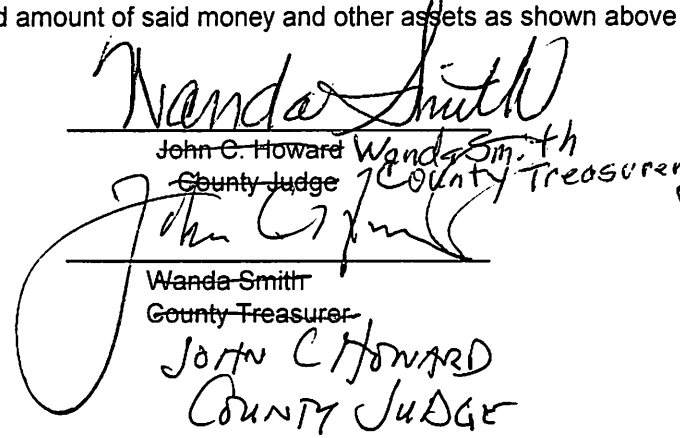 d amount of said money and other assets as shown above
Wanda Smith
John C. Howard Wanda Smith
County Judge County Treasurer
John C Howard
Wanda Smith
County Treasurer
JOHN C HOWARD
COUNTY JUDGE